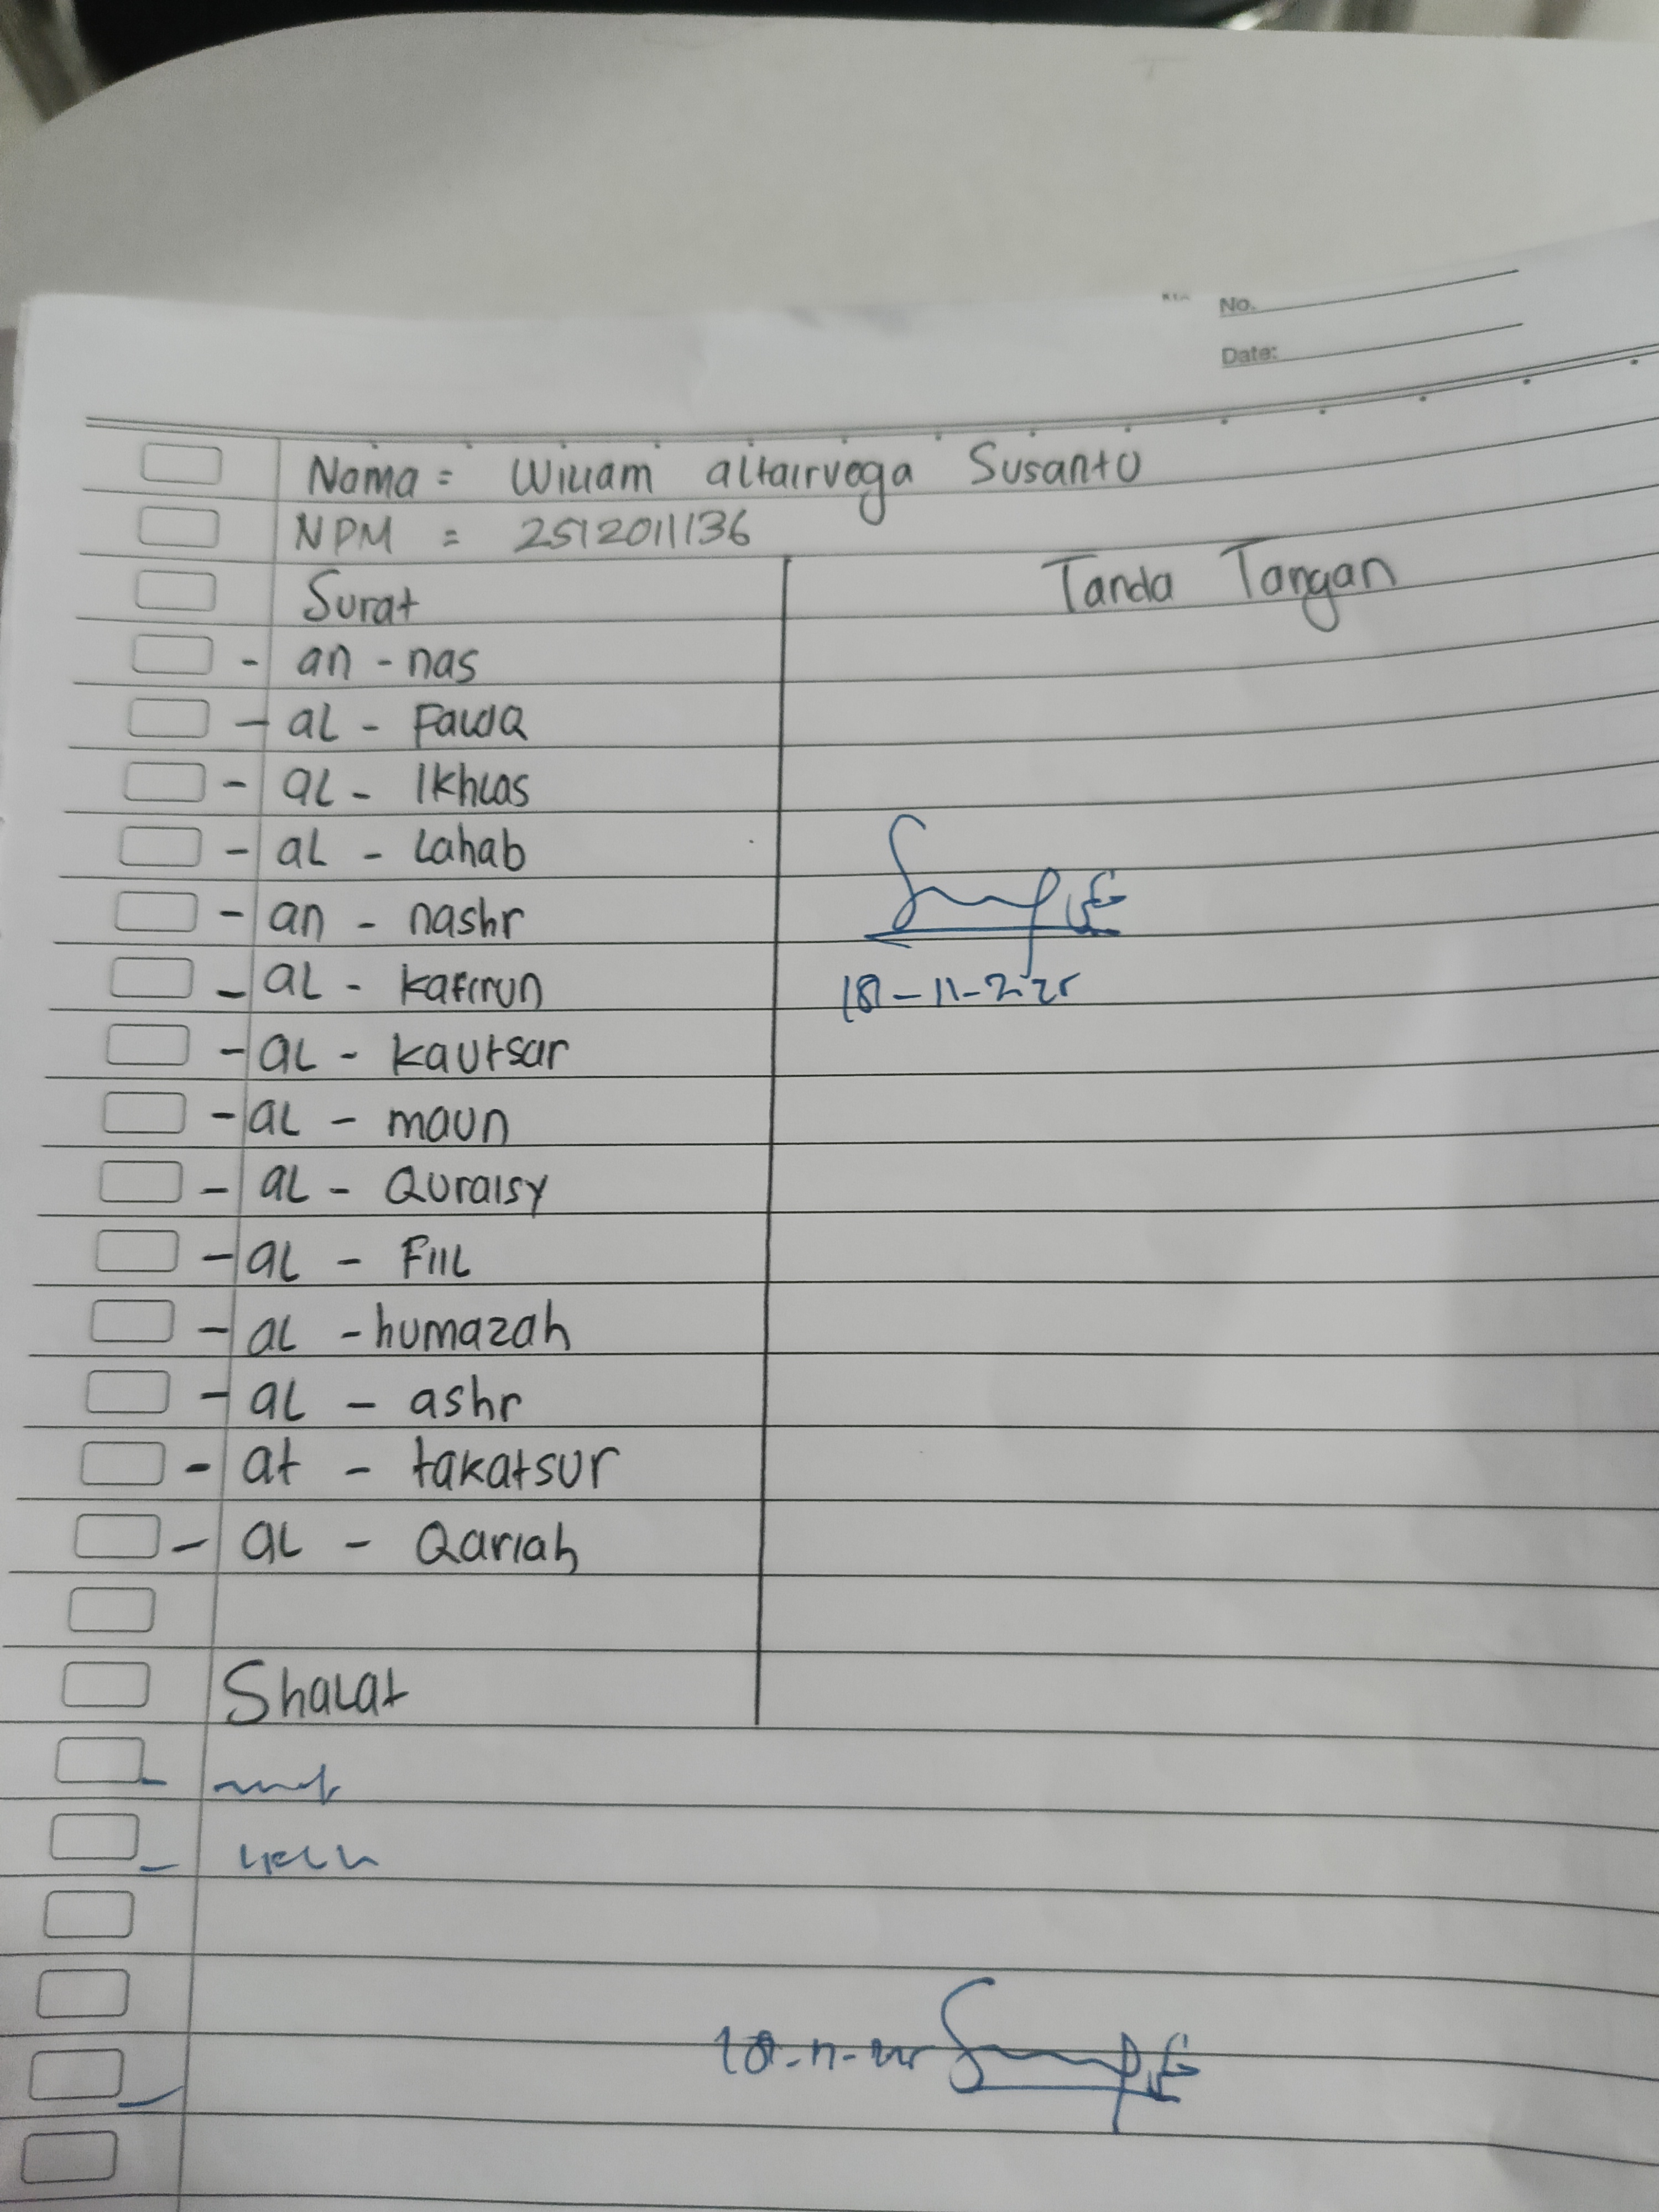 No.
Date:
Nama = William altairvega Susanto
NPM = 2512011136
Surat Tanda Tangan
- an - nas
- al - Falaq
- al - Ikhlas
- al - Lahab
- an - nashr
- al - kafirun
18-11-2025
- al - kautsar
- al - maun
- al - Quraisy
- al - Fiil
- al - humazah
- al - ashr
- at - takatsur
- al - Qariah
Shalat